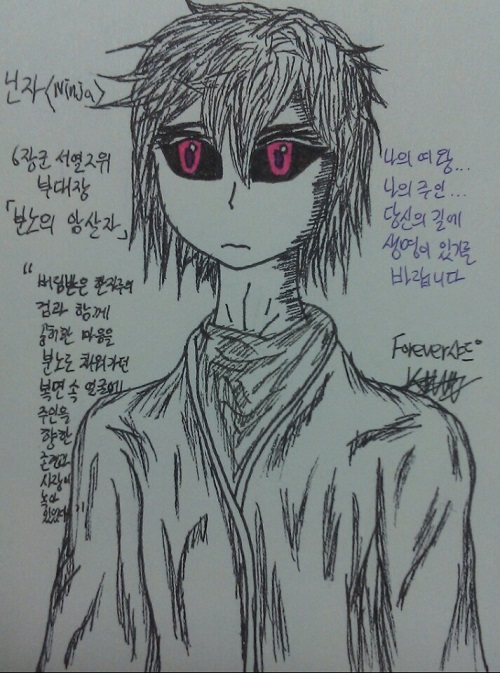 닌자<Ninja>
6장군 서열2위
부대장
「분노의 암살자」
"버림받은
검과 함께
공허한 마음을
분노로 채워가던
복면 속 얼굴에
주인을
향한
존경과
사랑이
녹아
있었다"
나의 여왕...
나의 주인...
당신의 길에
생명이 있기를
바랍니다
Forever샤즈